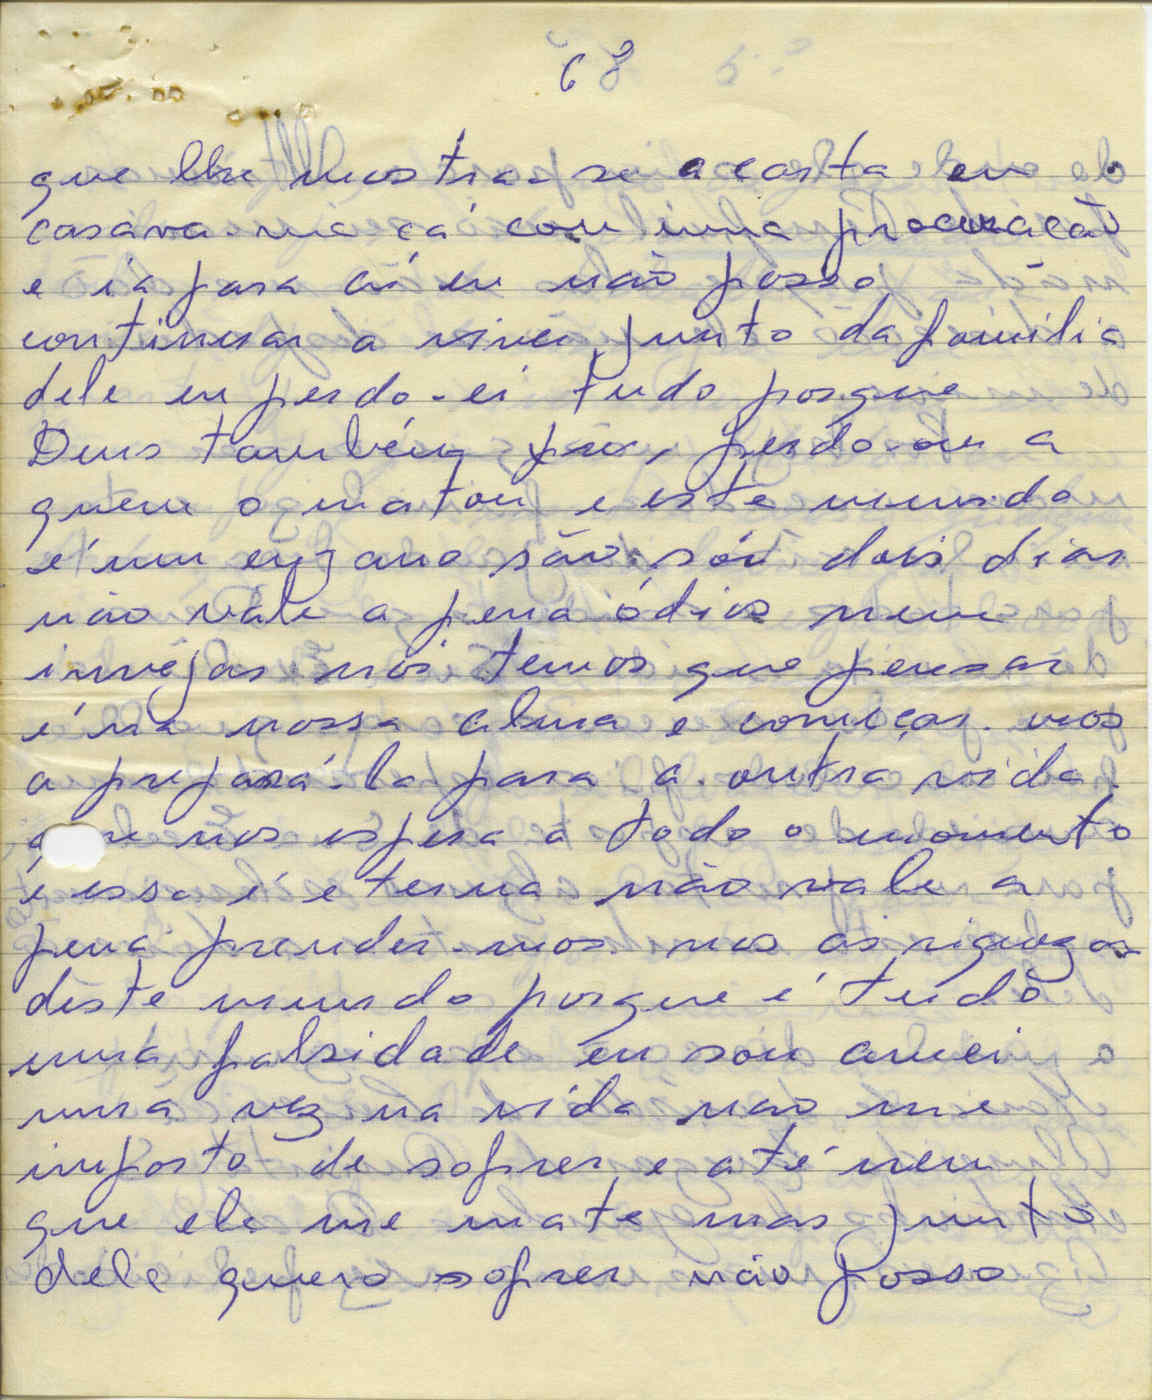 68
que lhe mostra-se a carta eu
casava-me cá com uma procuracão
e ia para aí eu não posso
continuar a viver junto da familia
dele eu perdo-ei tudo porque
Deus também perdo-ou a
quem o matou e este mundo
é um engano são sói dois dias
não vale a pena ódios nem
invejas nós temos que pensar
é na nossa alma é começar-mos
a prepará-la para a outra vida
que nos espera a todo o momento
é essa é eterna não vale a
pena prender-mos-nos as riquezas
deste mundo porque é tudo
uma falsidade eu sou amei
uma vez na vida nao me
inporto de sofrer e até nem
que ele me mate mas junto
dele quero sofrer não posso